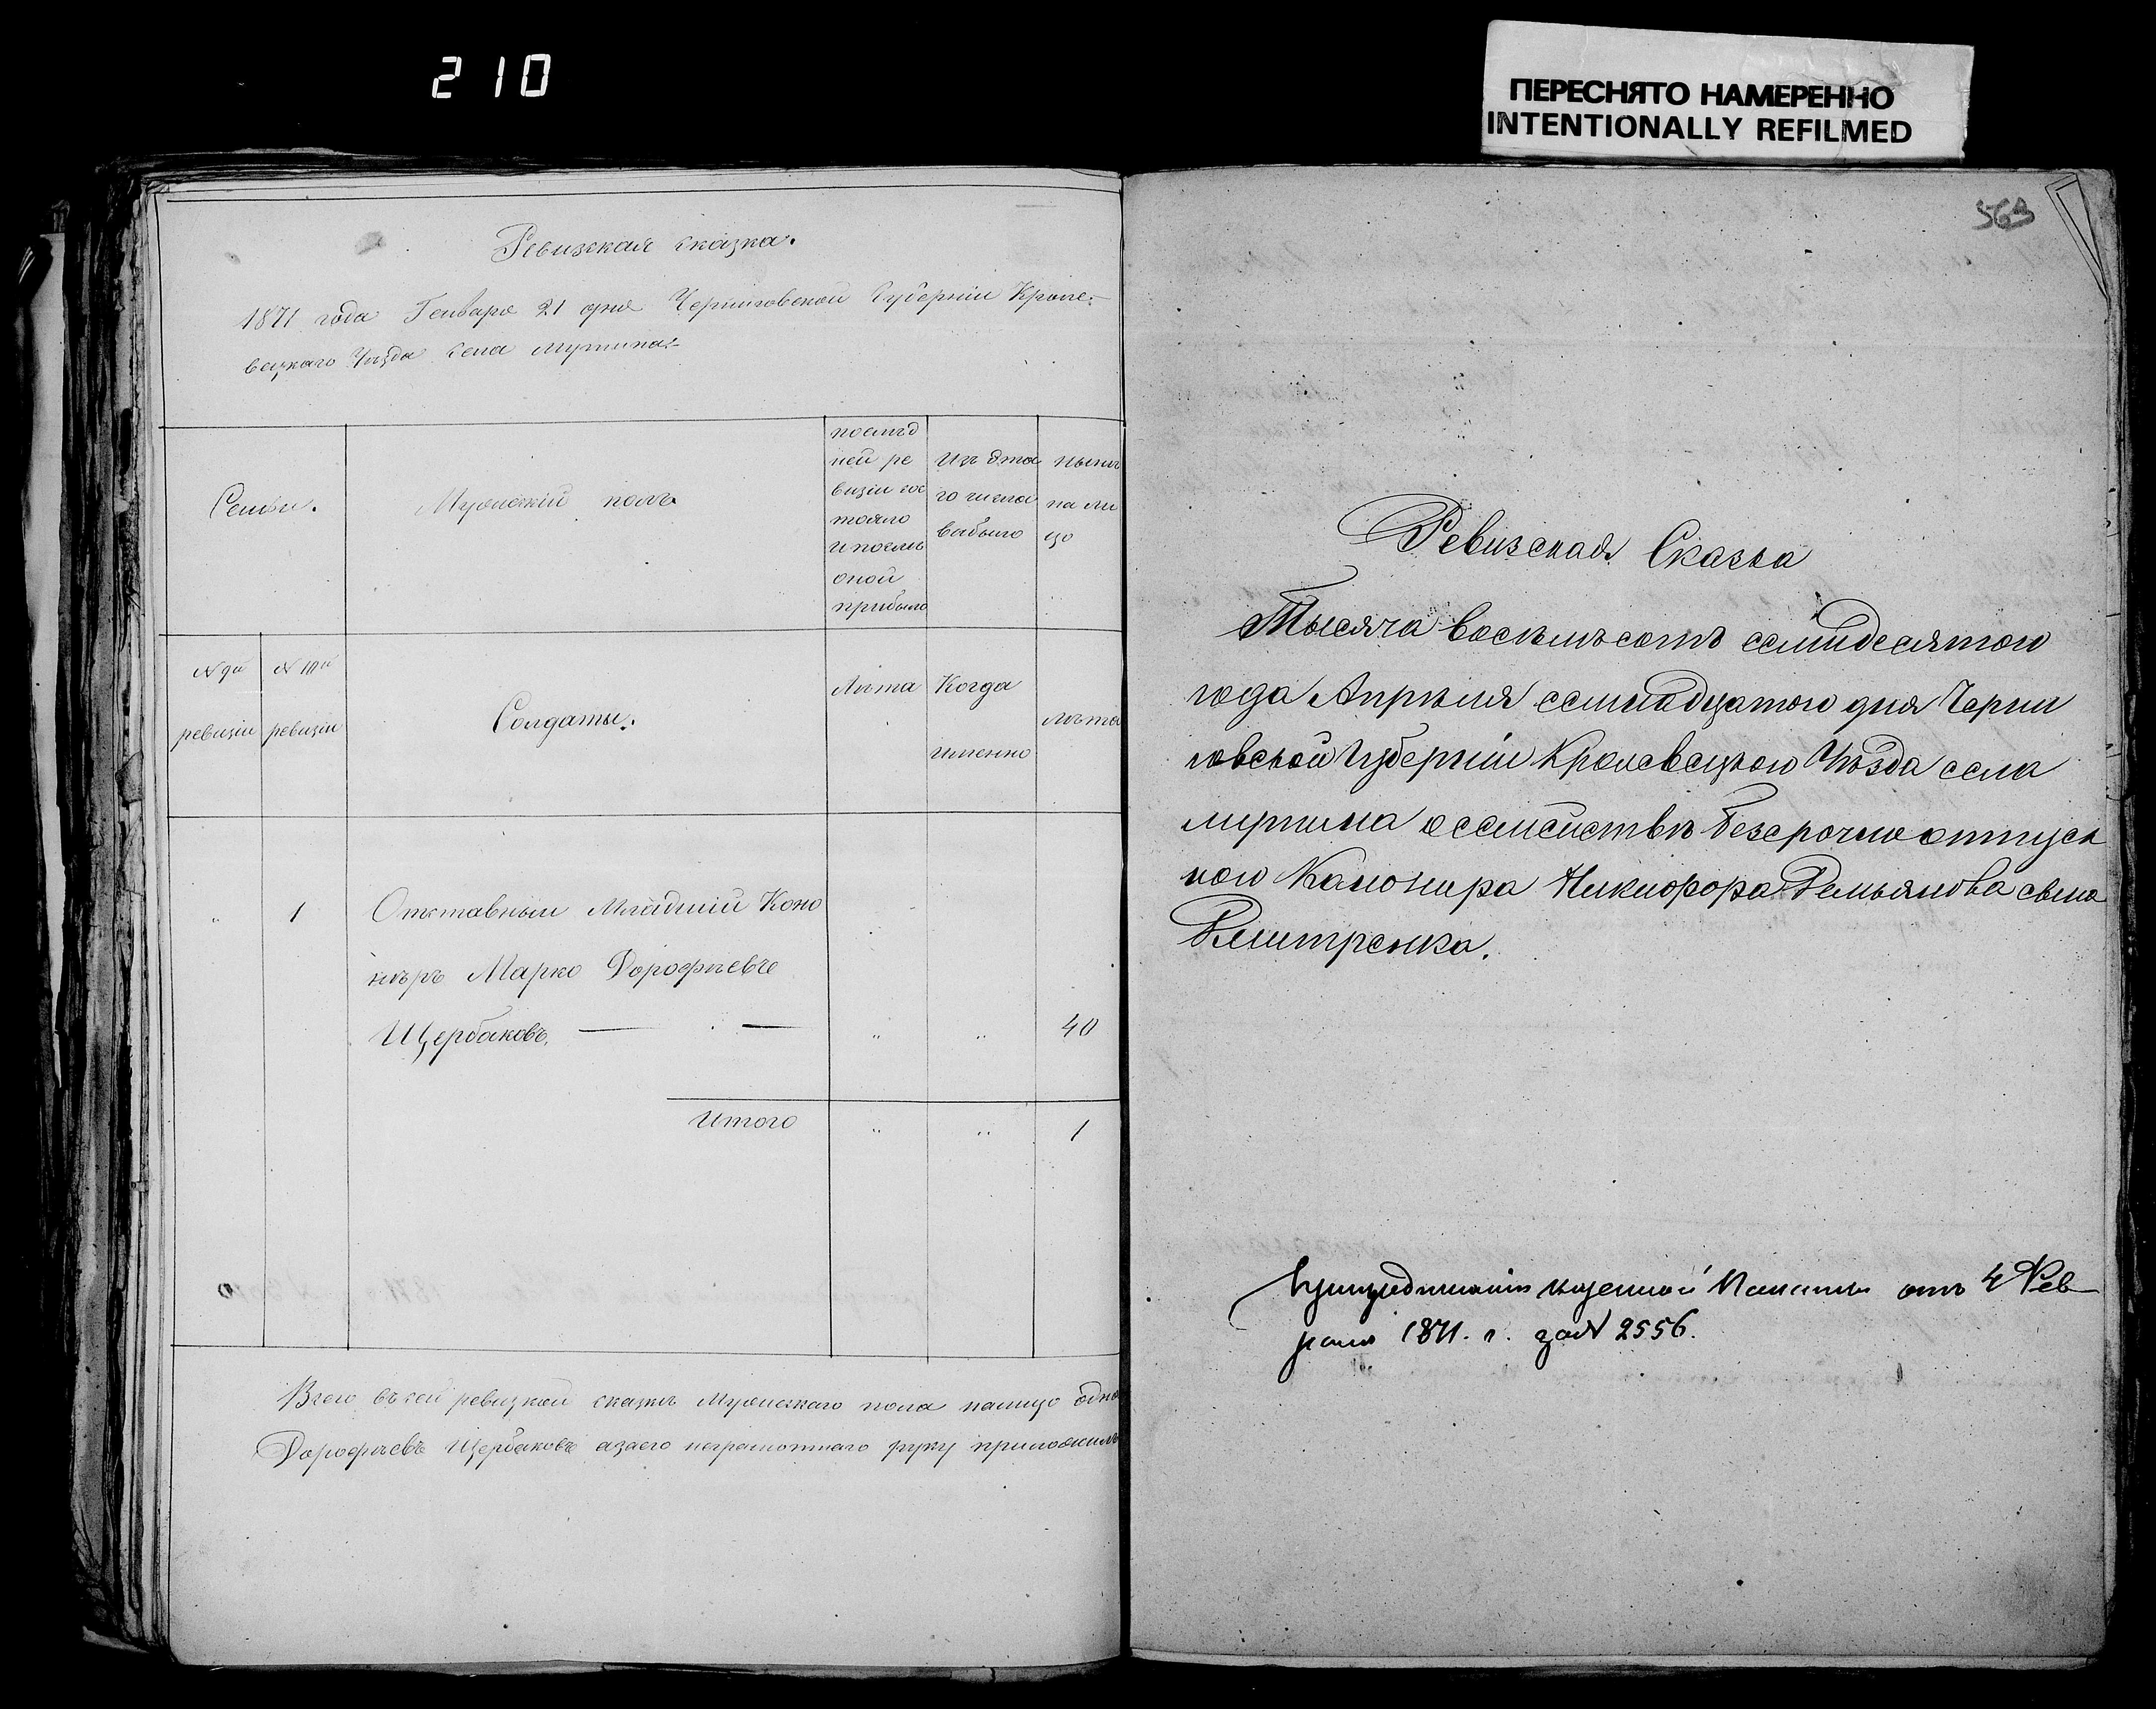 210
ПЕРЕСНЯТО НАМЕРЕННО
INTENTIONALLY REFILMED
Ревизская сказка.
1871 года Генваря 21 дня Черниговской Губерніи Кроле-
вецкаго Уѣзда села Мутина
Семьи.
Мужескій полъ
послѣд
ней ре
визіи сос
тояло
и послѣ
оной
прибыло
Изъ это
го числа
выбыло
нынѣ
на ли
цо
№ 9й
ревизіи
№ 10й
ревизіи
Солдаты.
Лѣта
Когда
именно
лѣта
" 1 Отставный Младшій Коно
нѣръ Марко Дорофѣевъ
Щербаковъ, — — " " 40
Итого " " 1
Всего въ сей ревизкой сказкѣ Мужескаго пола налицо одна
Дорофѣевъ Щербаковъ азаего неграмотнаго руку приложилъ
563
Ревизская Сказка
Тысяча восемьсотъ семидесятого
года Апрѣля семнадцатого дня Черни
говской Губерніи Кролевецкого Уѣзда села
Мутина о семействѣ безсрочно отпуск
ного Канонира Никифора Демьянова сына
Дмитренка.
казенной Палаты отъ 4 Фев
раля 1871. г. за № 2556.